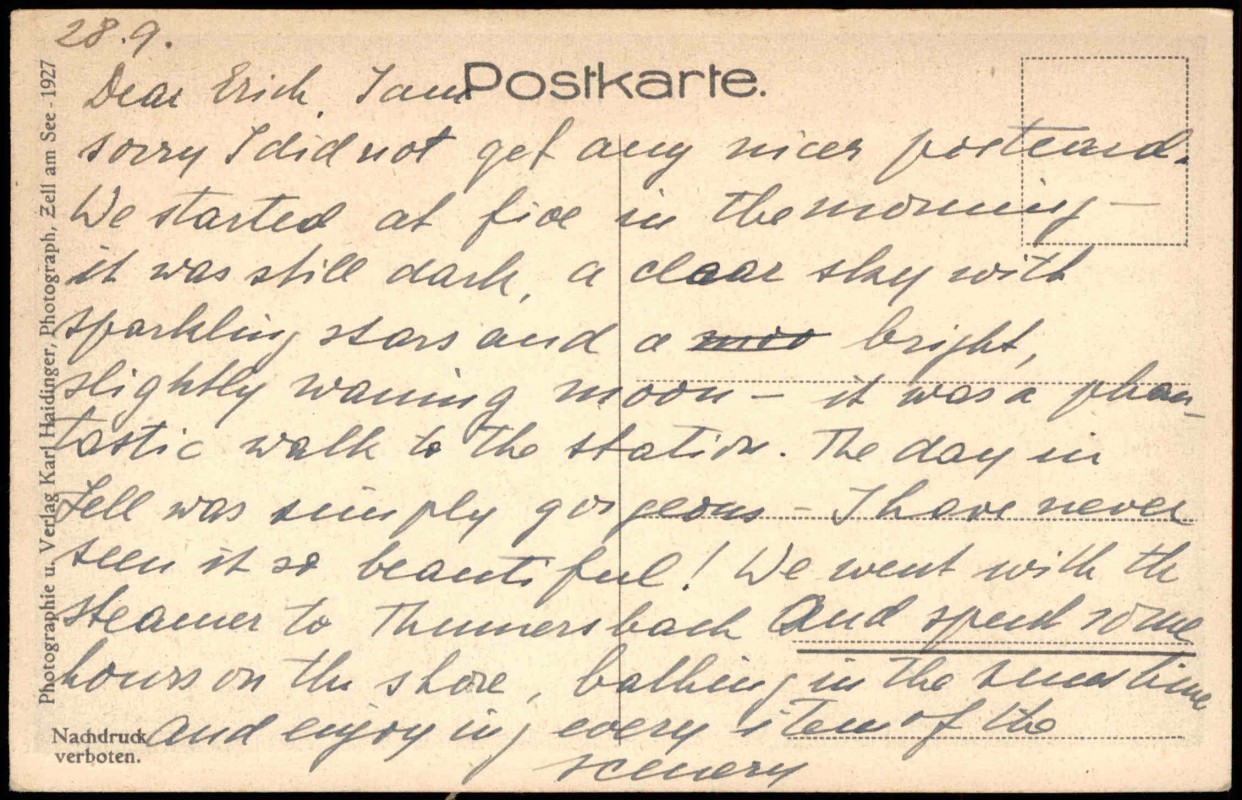 28.9.
Postkarte.
Dear Erich, I am
sorry I did not get any nicer postcard.
We started at five in the morning –
it was still dark, a clear sky with
sparkling stars and a bright,
slightly waning moon – it was a phan-
tastic walk to the station. The day in
Zell was simply gorgeous – I have never
seen it so beautiful! We went with the
steamer to Thumersbach and spent some
hours on the shore, bathing in the sunshine
and enjoying every item of the
scenery
Photographie u. Verlag Karl Haidinger, Photograph, Zell am See - 1927
Nachdruck
verboten.